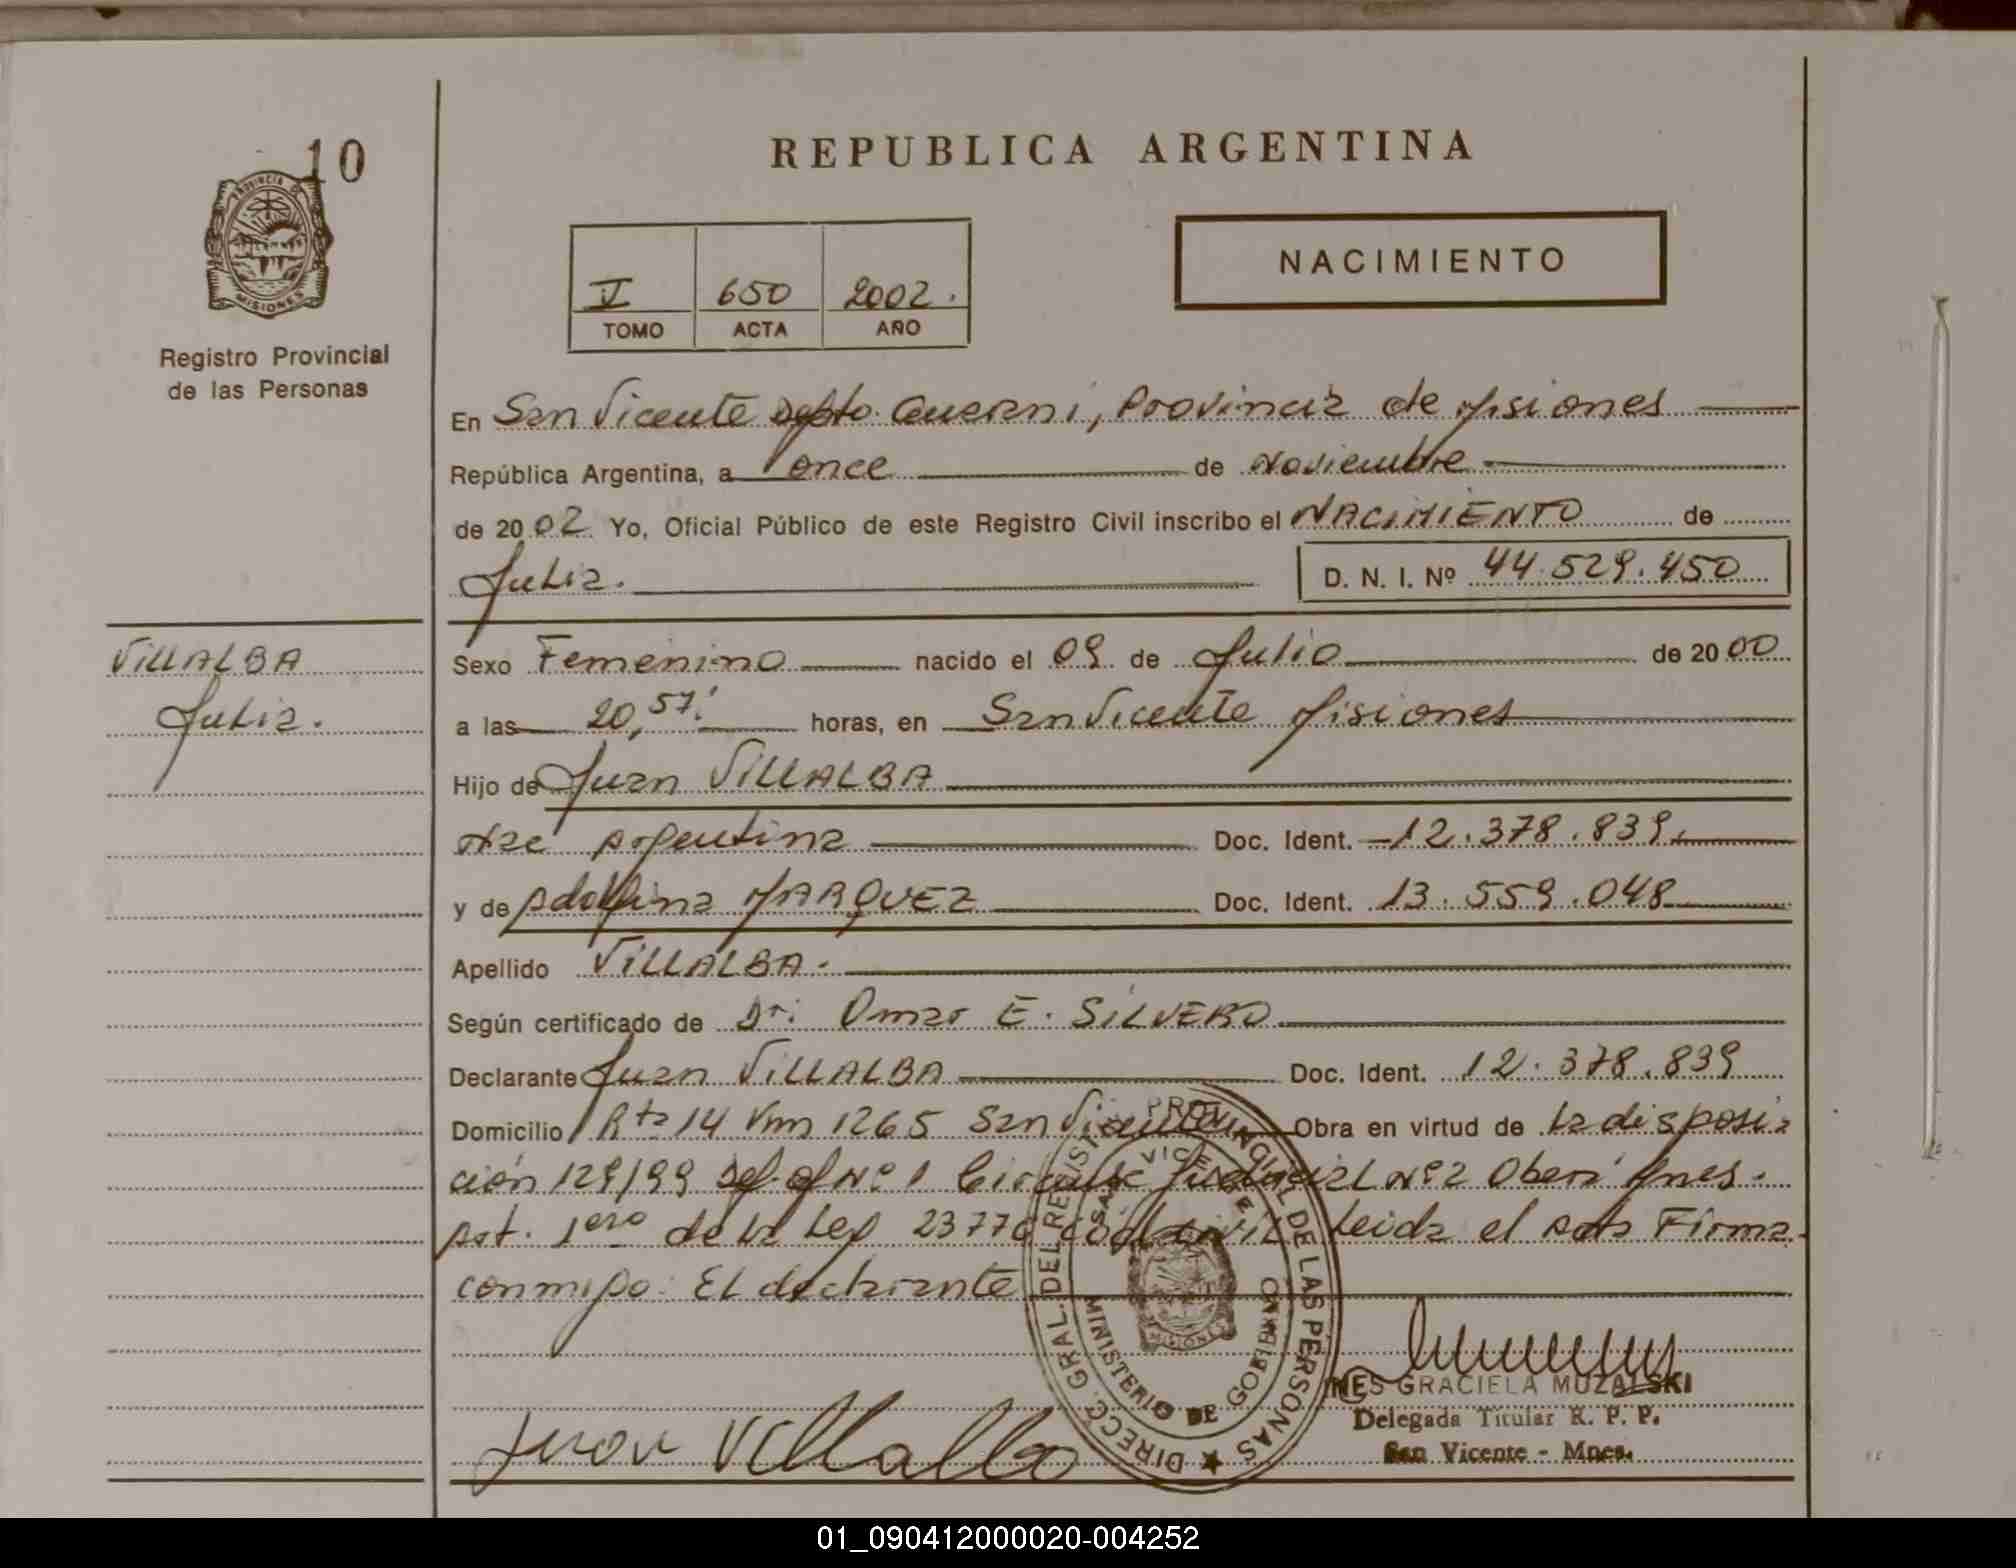 10
PROVINCIA DE
MISIONES
Registro Provincial
de las Personas
REPUBLICA ARGENTINA
V 650 2002.
TOMO ACTA AÑO
NACIMIENTO
En San Vicente Depto. Guarani, Provincia de Misiones
República Argentina, a once de Noviembre
de 2002 Yo, Oficial Público de este Registro Civil inscribo el NACIMIENTO de
Julia. D. N. I. Nº 44.529.450
VILLALBA
Julia.
Sexo Femenino nacido el 09 de Julio de 2000
a las 20,57' horas, en San Vicente Misiones
Hijo de Juan VILLALBA
Nac Argentina Doc. Ident. 12.378.839.
y de Adolfina MARQUEZ Doc. Ident. 13.559.048
Apellido VILLALBA.
Según certificado de Dr: Omar E. SILVERO
Declarante Juan VILLALBA Doc. Ident. 12.378.839
Domicilio Rta 14 Km 1265 San Vicente Obra en virtud de La disposi
ción 129/99 Def. of Nº 1 Judicial Nº 2 Oberá Mnes.
Art. 1ero de la Ley 23776 Cod Civil Leida el acta Firma
conmigo: El declarante
DIRECC. GRAL. DEL REGISTRO PROVINCIAL DE LAS PERSONAS
SAN VICENTE
MISIONES
MINISTERIO DE GOBIERNO
INES GRACIELA MUZALSKI
Delegada Titular R. P. P.
San Vicente - Mnes.
Juan Villalba
01_090412000020-004252